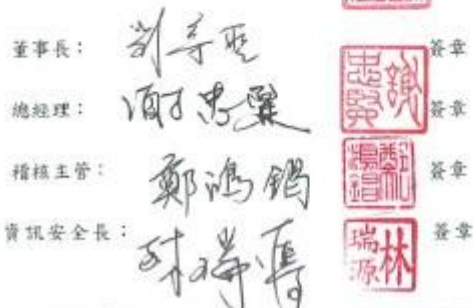 董事長： 簽章
總經理：謝忠賢 簽章
稽核主管：鄭鴻錩 簽章
資訊安全長：林瑞源 簽章